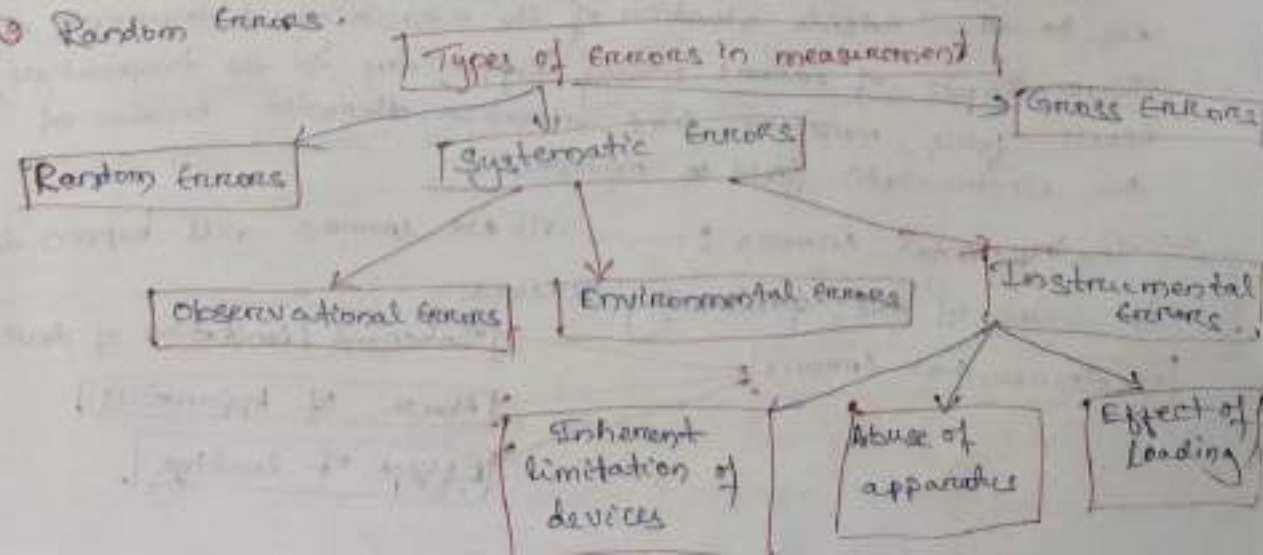 Random Errors.
Types of Errors in measurement
Gross Errors
Random Errors
Systematic Errors
Observational Errors
Environmental Errors
Instrumental
Errors.
Inherent
limitation of
devices
Abuse of
apparatus
Effect of
Loading